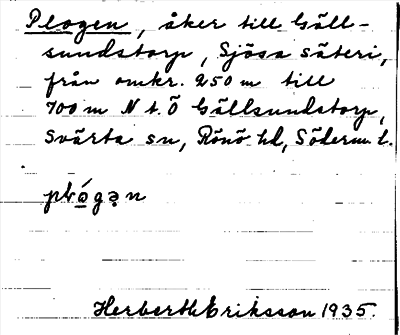 Plogen, åker till Gäll-
sundstorp, Sjösa säteri,
från omkr. 250 m till
700 m N t. Ö Gällsundstorp,
Svärta sn, Rönö hd, Söderm. l.
plógən
Herberth Eriksson 1935.